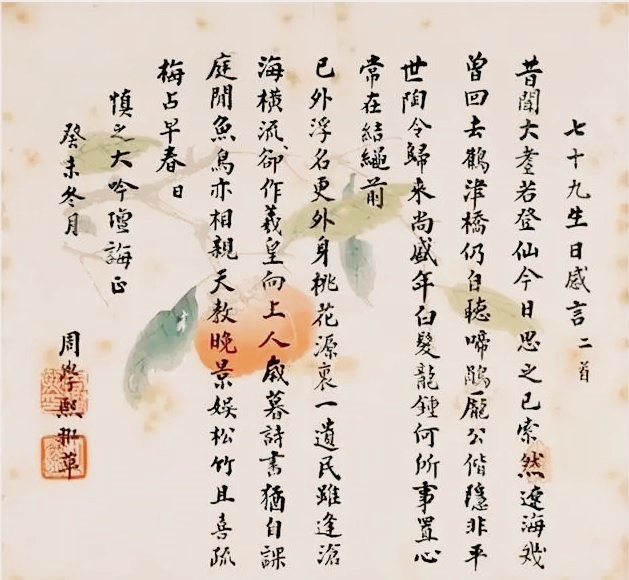 七十九生日感言二首
昔聞大耋若登仙今日思之已索然遼海幾
曾回去鶴津橋仍自聽啼鵑龐公偕隱非平
世陶令歸來尚盛年白髮龍鍾何所事置心
常在結繩前
已外浮名更外身桃花源裏一遺民雖逢滄
海橫流卻作羲皇向上人歲暮詩書猶自課
庭閒魚鳥亦相親天教晚景娛松竹且喜疏
梅占早春日
慎之大吟壇誨正
癸未冬月
周學熙初草